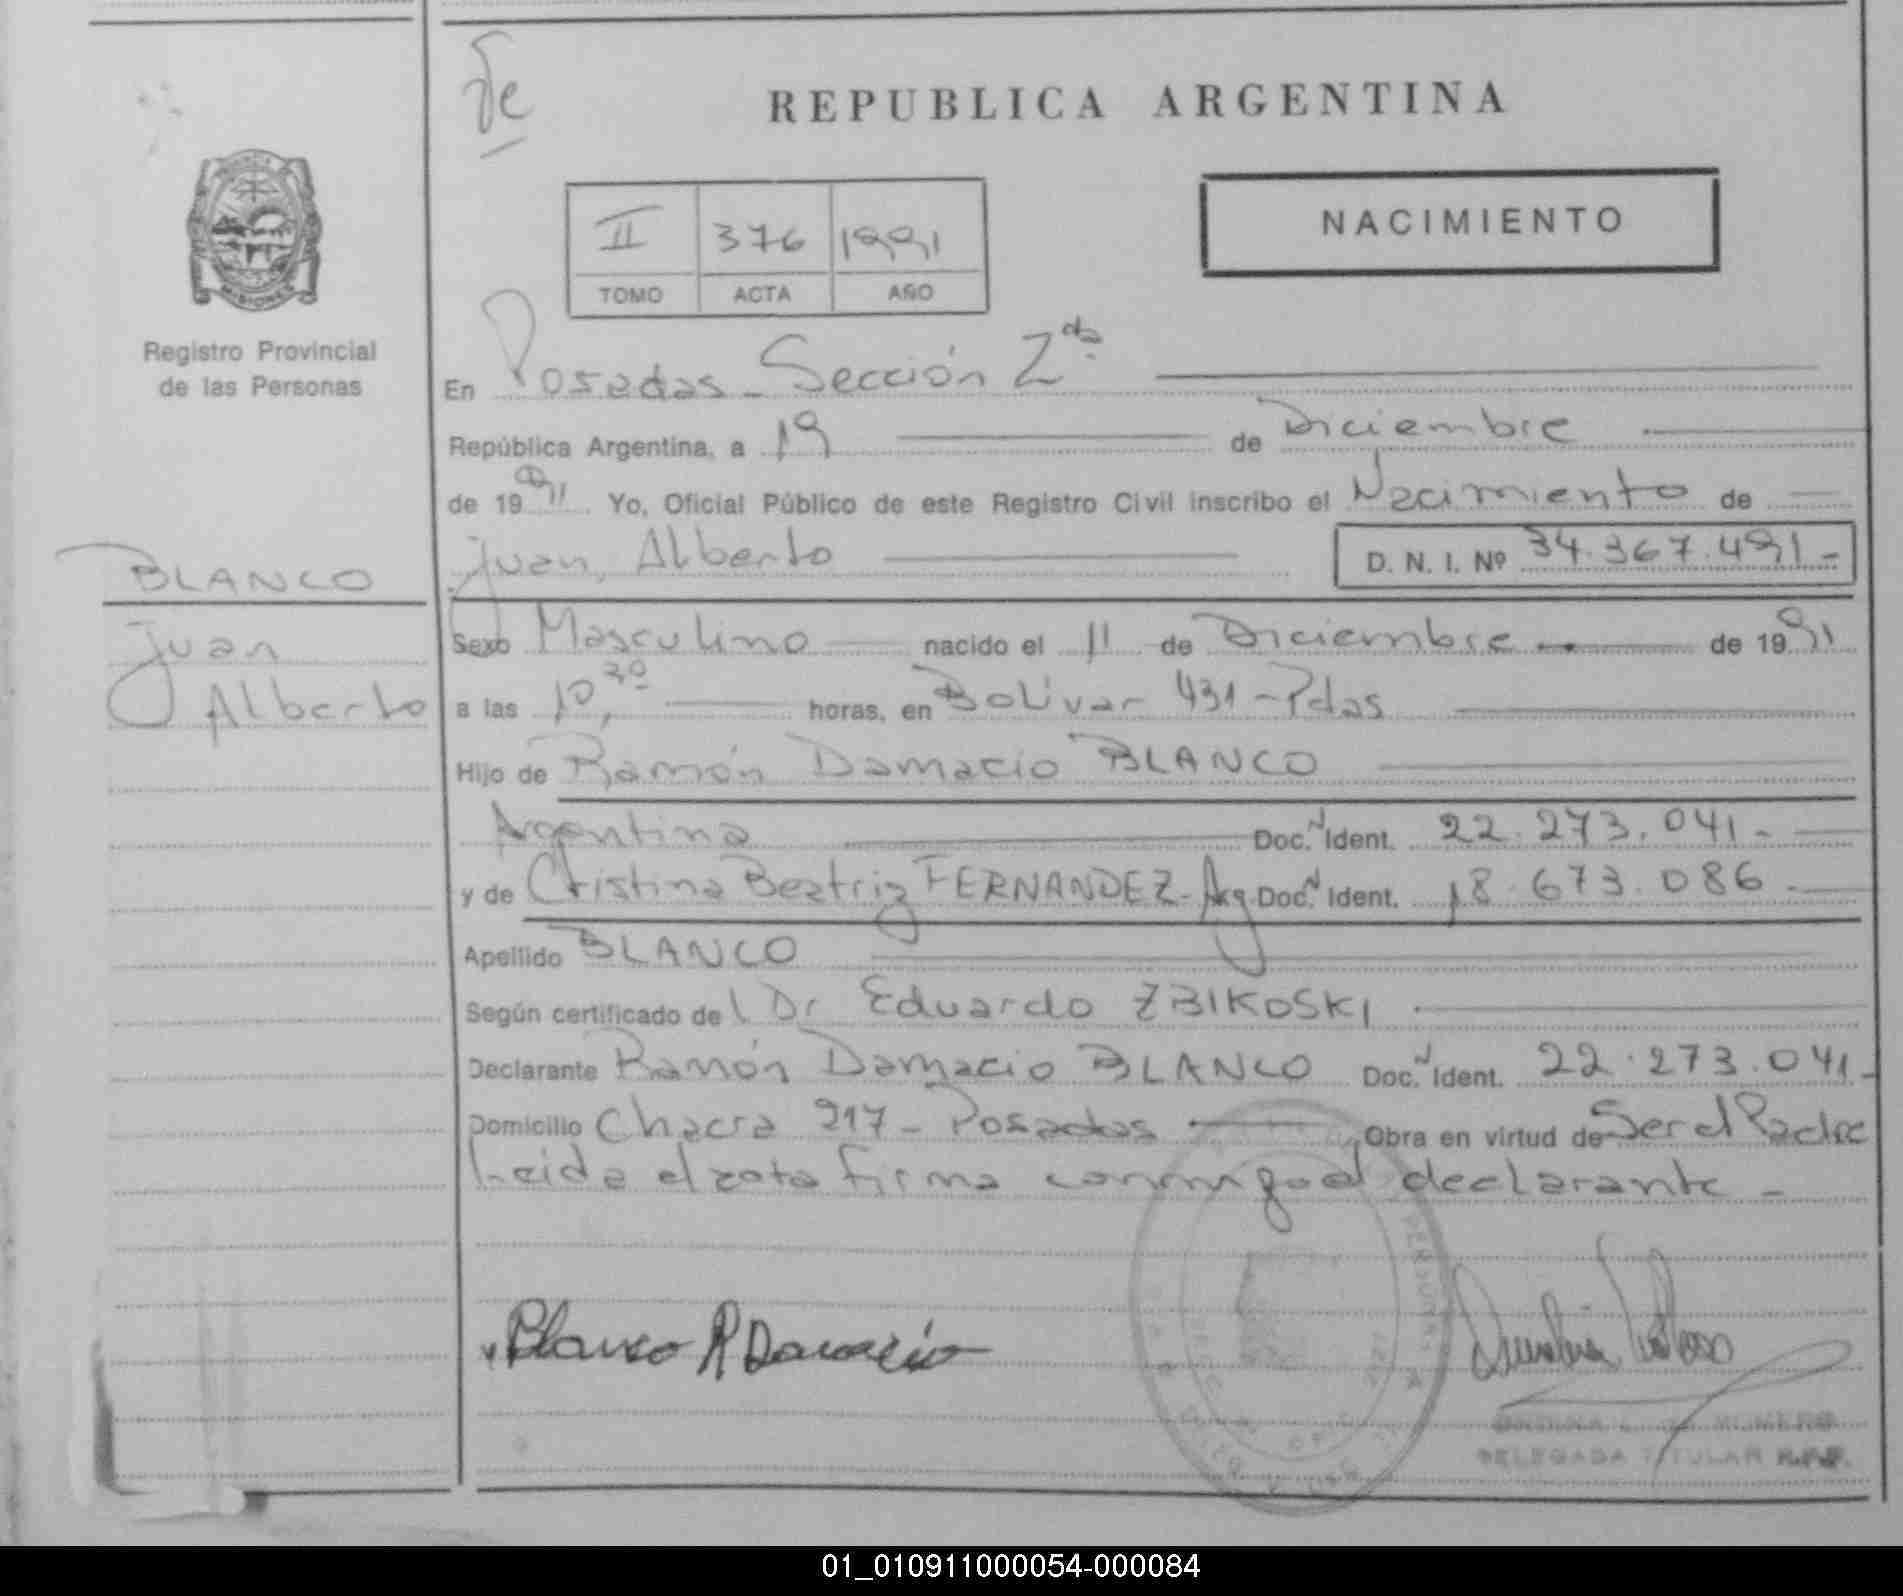 de
REPUBLICA ARGENTINA
NACIMIENTO
II 376 1991
TOMO ACTA AÑO
MISIONES
Registro Provincial
de las Personas
En Posadas - Sección 2da
República Argentina, a 19 de Diciembre
de 1991. Yo, Oficial Público de este Registro Civil inscribo el Nacimiento de
Juan, Alberto D. N. I. Nº 34.367.491-
BLANCO
Juan
Alberto
Sexo Masculino nacido el 11 de Diciembre de 1991
a las 10,30 horas, en Bolívar 431 - Pdas
Hijo de Ramón Damacio BLANCO
Argentina Doc. N Ident. 22.273.041-
y de Cristina Beatriz FERNANDEZ - Arg. Doc. N Ident. 18.673.086-
Apellido BLANCO
Según certificado del Dr Eduardo ZBIKOSKI
Declarante Ramón Damacio BLANCO Doc. N Ident. 22.273.041-
Domicilio Chacra 217 - Posadas Obra en virtud de Ser el Padre
Leida el acta firma conmigo el declarante -
Blanco R Damacio
DELEGADA TITULAR R.P.P.
01_010911000054-000084